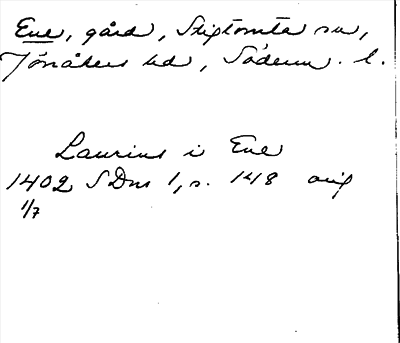 Ene, gård, Stigtomta sn,
Jönåkers hd, Söderm. l.
Laurins i Ene
1402 SDns 1, s. 148 orig
1/7